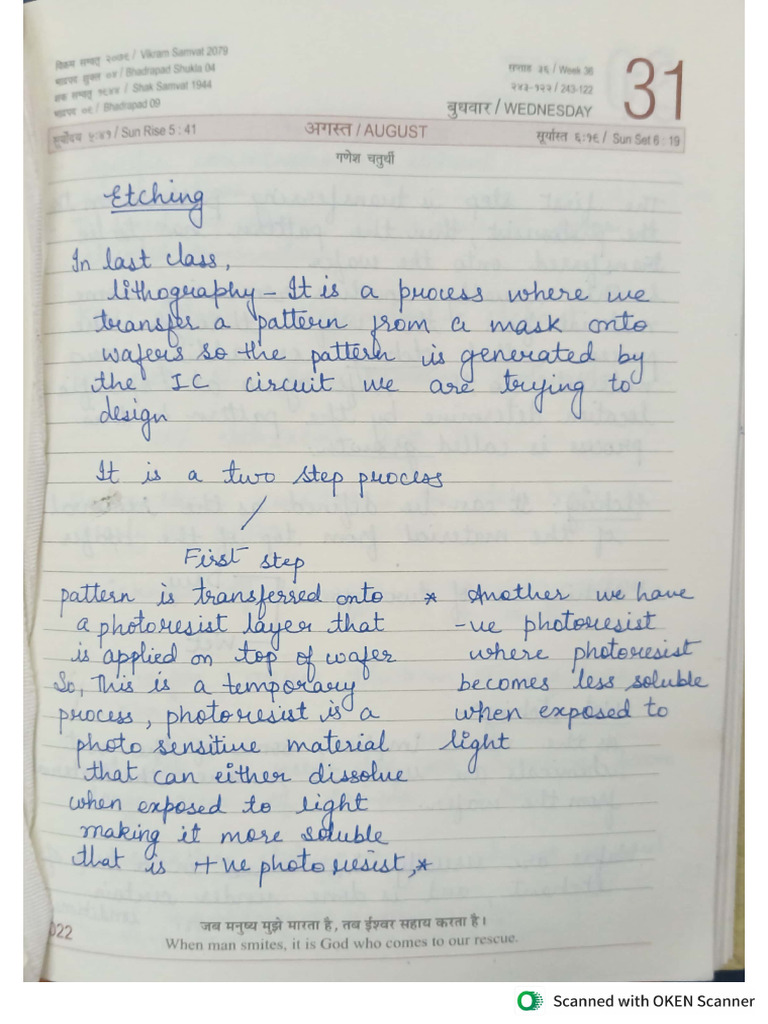 विक्रम सम्वत् २०७९ / Vikram Samvat 2079
भाद्रपद शुक्ल ०४ / Bhadrapad Shukla 04
शक सम्वत् १९४४ / Shak Samvat 1944
भाद्रपद ०९ / Bhadrapad 09
सप्ताह ३६ / Week 36
२४३-१२२ / 243-122
बुधवार / WEDNESDAY
31
सूर्योदय ५:४१ / Sun Rise 5 : 41
अगस्त / AUGUST
सूर्यास्त ६:१९ / Sun Set 6 : 19
गणेश चतुर्थी
Etching
In last class,
lithography - It is a process where we
transfer a pattern from a mask onto
wafers so the pattern is generated by
the IC circuit we are trying to
design
It is a two step process
First step
pattern is transferred onto
a photoresist layer that
is applied on top of wafer
So, This is a temporary
process, photoresist is a
photo sensitive material
that can either dissolve
when exposed to light
making it more soluble
that is +ve photoresist, *
* Another we have
-ve photoresist
where photoresist
becomes less soluble
when exposed to
light
022
जब मनुष्य मुझे मारता है, तब ईश्वर सहाय करता है।
When man smites, it is God who comes to our rescue.
Scanned with OKEN Scanner